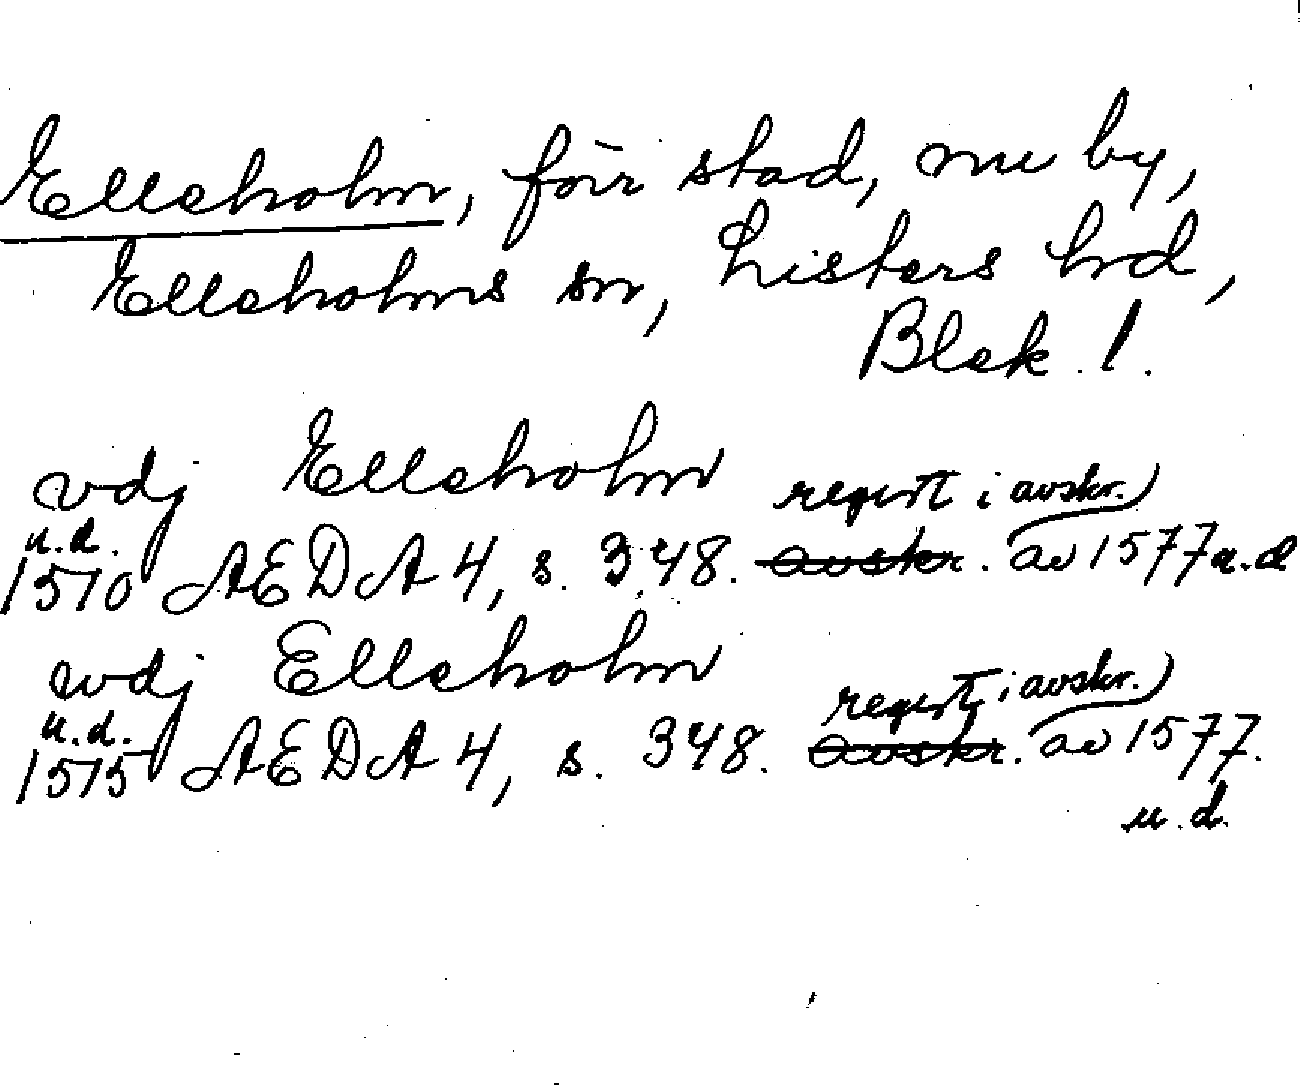 Elleholm, förr stad, nu by,
Elleholms sn, Listers hd,
Blek. l.
vdj Elleholm regist i avskr.
u.d.
1570 AEDA 4, s. 348. avskr. av 1577 u.d
wdj Elleholm regist i avskr.
u.d.
1575 AEDA 4, s. 348. avskr. av 1577.
u.d.